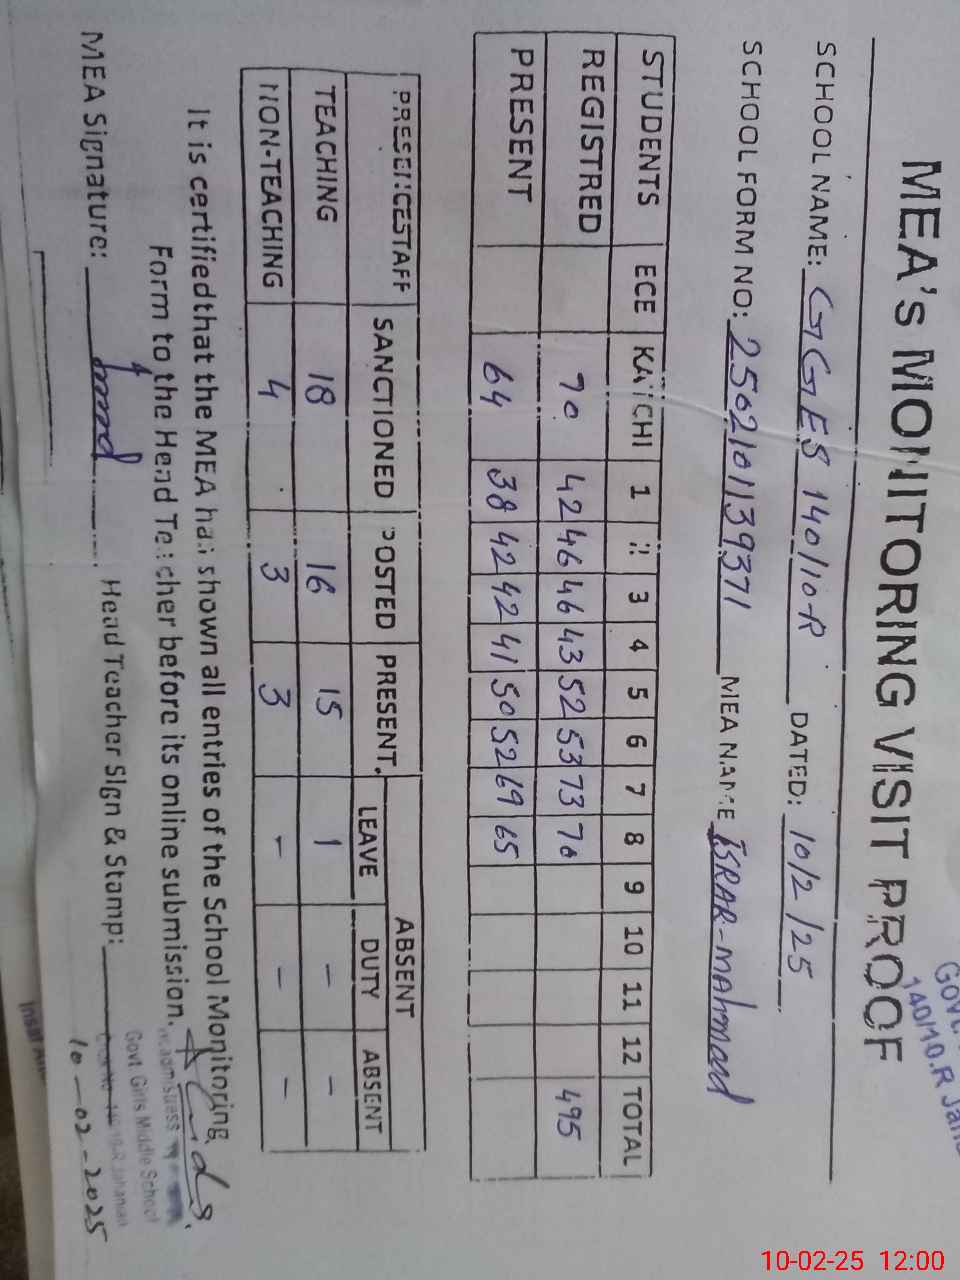 Govt.
140/10.R Jaha
MEA's MONITORING VISIT PROOF
SCHOOL NAME: GGES 140/10-R DATED: 10/2/25
SCHOOL FORM NO: 2502101139371 MEA NAME ISRAR-MAHMOOD
STUDENTS ECE KATCHI 1 2 3 4 5 6 7 8 9 10 11 12 TOTAL
REGISTRED 70 42 46 46 43 52 53 73 70 495
PRESENT 64 38 42 42 41 50 52 69 65
PRESENCESTAFF SANCTIONED POSTED PRESENT. ABSENT
LEAVE DUTY ABSENT
TEACHING 18 16 15 1 - -
NON-TEACHING 4 3 3 - - -
It is certified that the MEA has shown all entries of the School Monitoring
Form to the Head Teacher before its online submission.
MEA Signature: Head Teacher Sign & Stamp:
Headmistress
Govt Girls Middle School
140/10-R Jahanian
10-02-2025
10-02-25 12:00